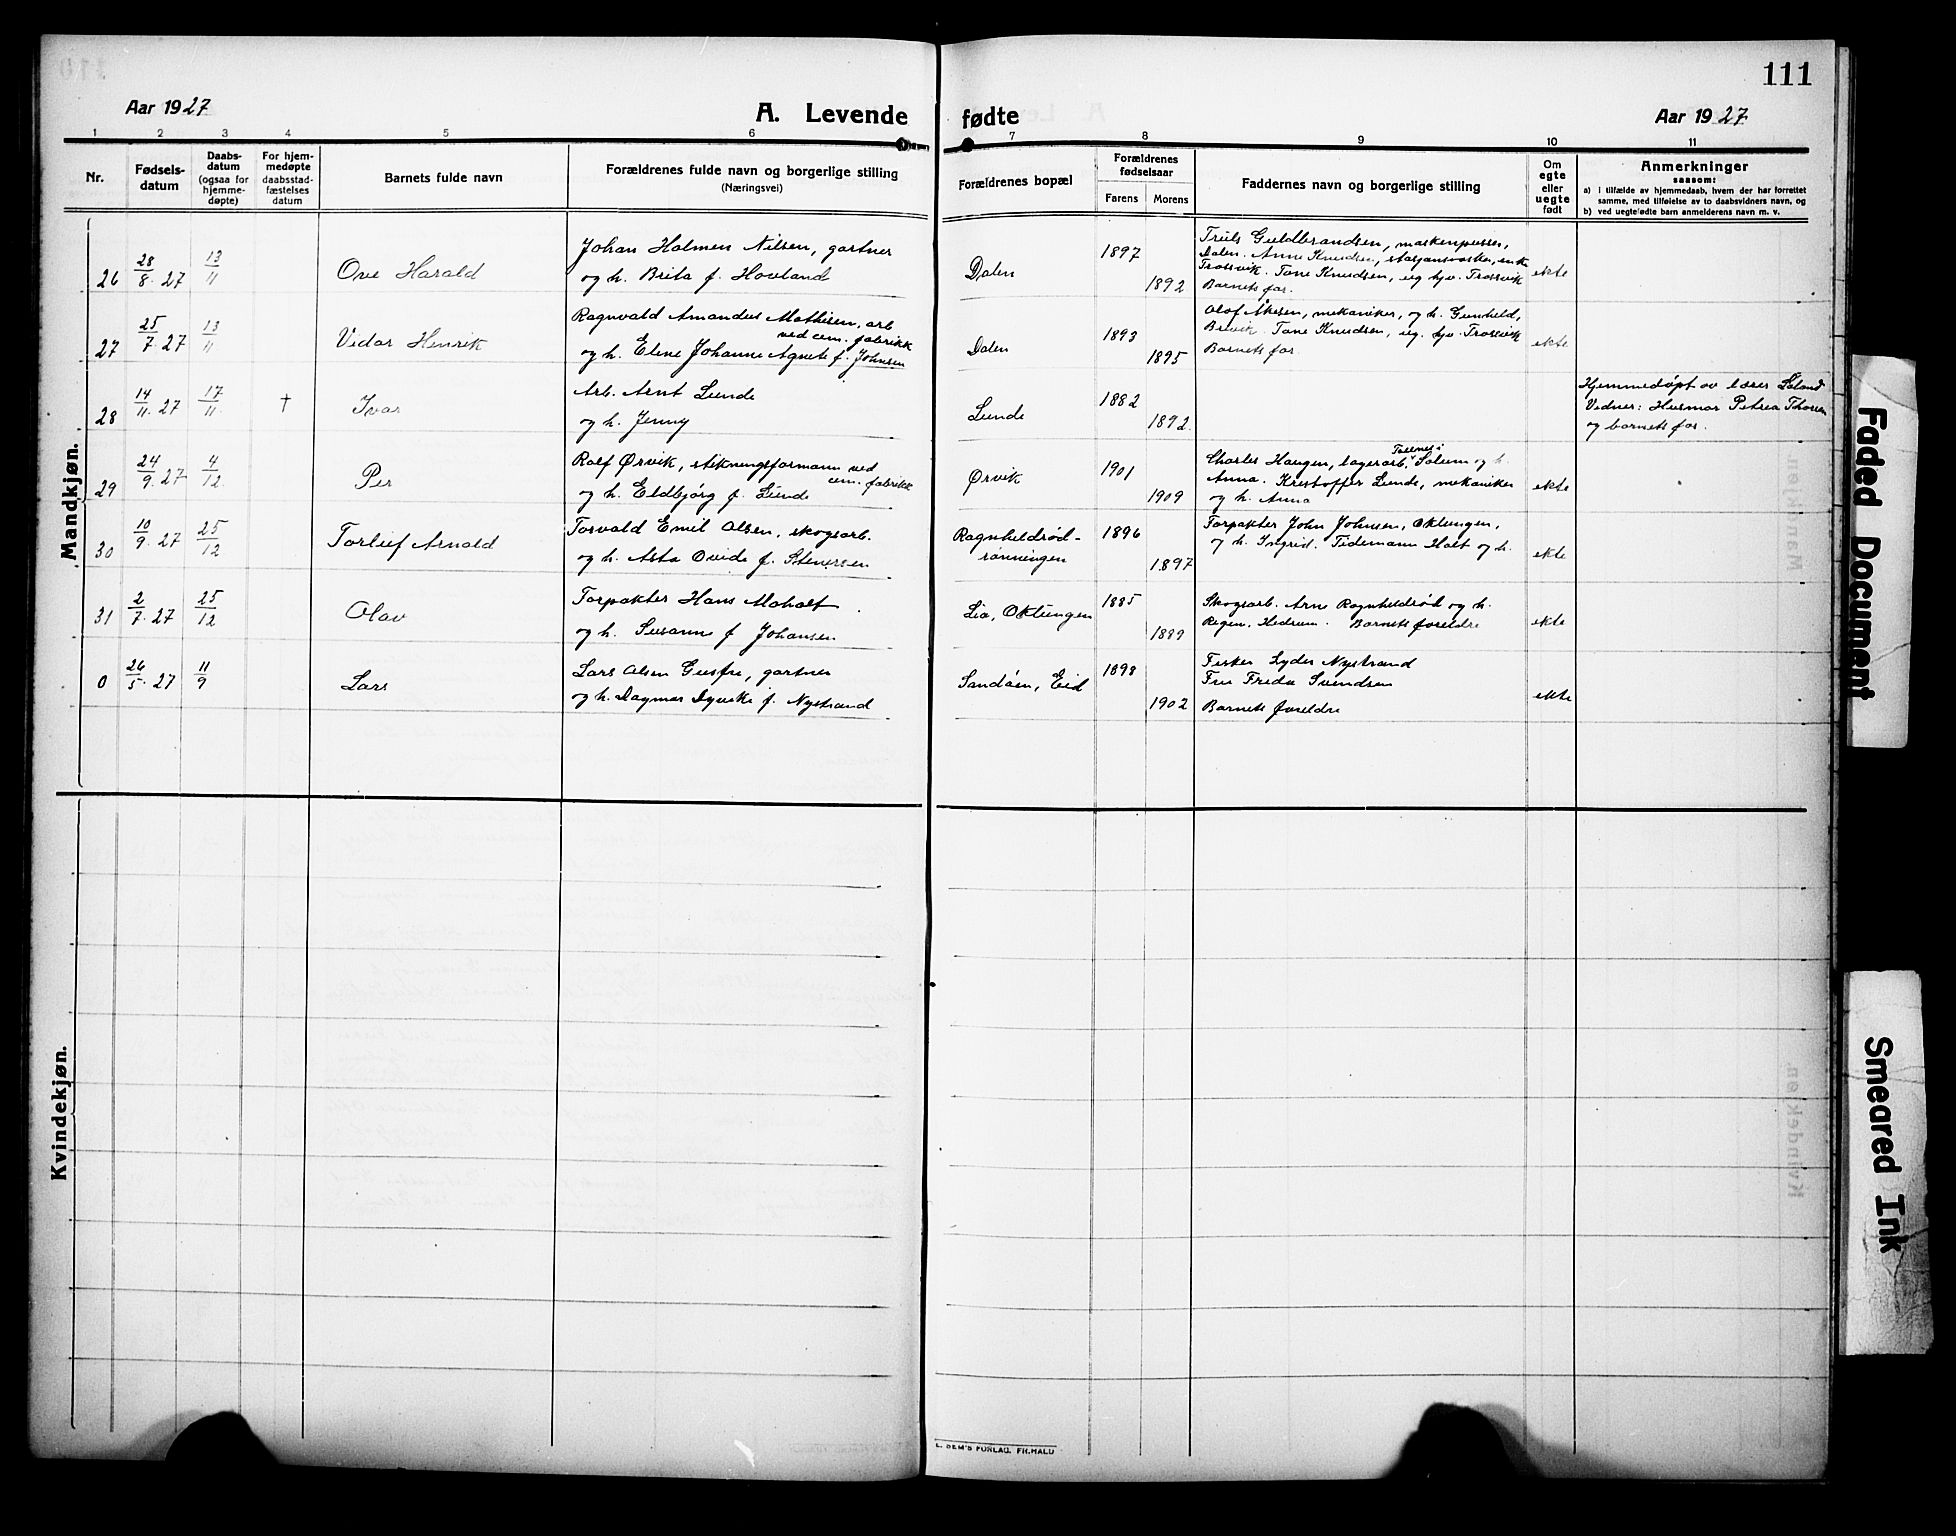 111
Aar 1927
A. Levende
fødte
Aar 1927
1 2 3 4 5 6 7 8 9 10 11
Nr.
Fødsels-
datum
Daabs-
datum
(ogsaa for
hjemme-
døpte)
For hjem-
medøpte
daabsstad-
fæstelses
datum
Barnets fulde navn
Forældrenes fulde navn og borgerlige stilling
(Næringsvei)
Forældrenes bopæl
Forældrenes
fødselsaar
Farens Morens
Faddernes navn og borgerlige stilling
Om
egte
eller
uegte
født
Anmerkninger
saasom:
a) i tilfælde av hjemmedaab, hvem der har forrettet
samme, med tilføielse av to daabsvidners navn, og
b) ved uegtefødte barn anmelderens navn m. v.
Mandkjøn.
26 28/8. 27 13/11 Ove Harald
Johan Holmen Nilsen, gartner
og h. Brita f. Hovland
Dalen 1897 1892
Truls Guldbrandsen, maskenpusser,
Dalen. Anne Knudsen, enke
Trosvik. Tone Knudsen, ug. hjv. Trosvik
Barnets far.
ekte
27 25/7. 27 13/11 Vidar Henrik
Ragnvald Amandus Mathisen, arb
ved cem. fabrikk
og h. Eline Johanne Agnete f. Johnsen
Dalen 1893 1895
Olof Åkesen, mekaniker, og h. Gunhild,
Brevik. Tone Knudsen, ug. hjv. Trosvik
Barnets far
ekte
28 14/11. 27 17/11 † Ivar
Arb. Arnt Lunde
og h. Jenny
Lunde 1882 1892.
Hjemmedøpt av lærer
Vidner: Husmor Petrea Thorsen
og barnets far.
29 24/9. 27 4/12 Per
Rolf Ørvik, stikningsformann ved
cem. fabrikk
og h. Eldbjørg f. Lunde
Ørvik 1901 1909
Charles Haugen, lagerarb. Solum og h.
Anna. Kristoffer Lunde, mekaniker
og h. Anna
ekte
30 10/9. 27 25/12 Torleif Arnold
Torvald Emil Olsen, skogsarb.
og h. Asta Ovida f. Stenersen
Ragnhildrød-
rønningen
1896 1897
Forpakter John Johnsen, Oklungen,
og h. Ingrid. Tidemann Holt og h.
ekte
31 2/7. 27 25/12 Olav
Forpakter Hans Moholt
og h. Susanne f. Johansen
Lia, Oklungen 1885 1889
Skogsarb. Arne Ragnhildrød og h.
Hedrum. Barnets foreldre
ekte
0 26/5. 27 11/9 Lars
Lars Olsen Gusfre, gartner
og h. Dagmar Dyveke f. Nystrand
Sandåen, Eid 1898 1902
Fisker Lyder Nystrand
Fru Frida Svendsen
Barnets foreldre
ekte
Kvindekjøn.
E. SEM'S FORLAG. FR.HALD
Faded Document
Smeared Ink